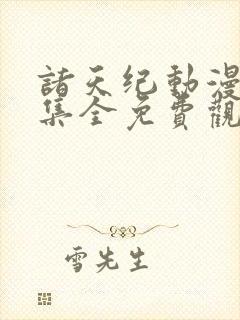 諸天纪動漫
集全免費觀
雪先生